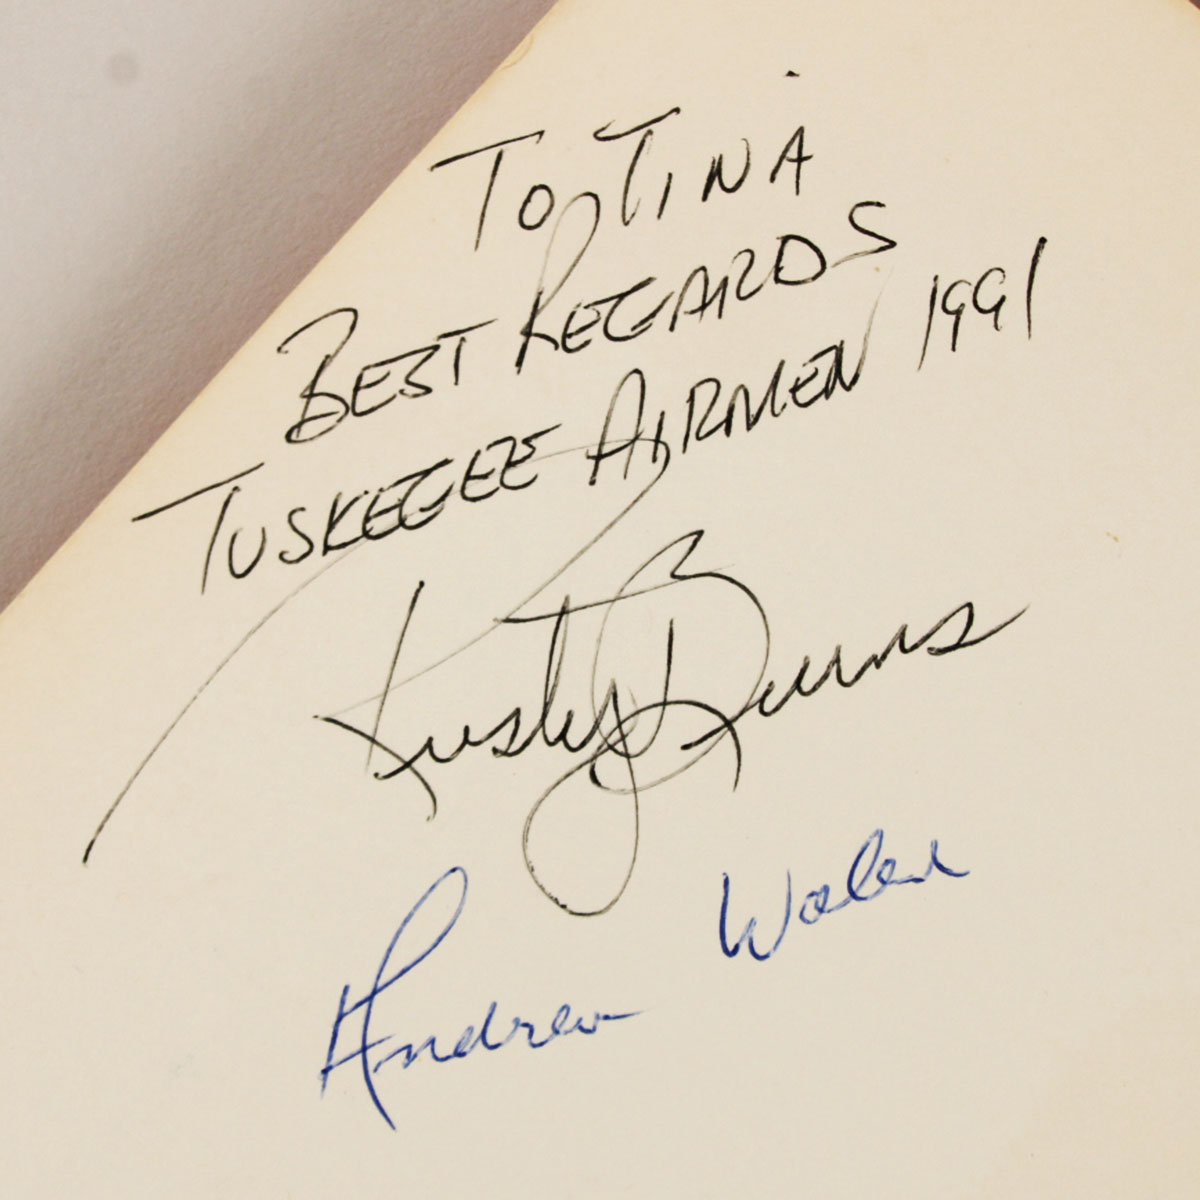 To Tina
Best Regards
Tuskegee Airmen 1991
Rusty Burns
Andrew